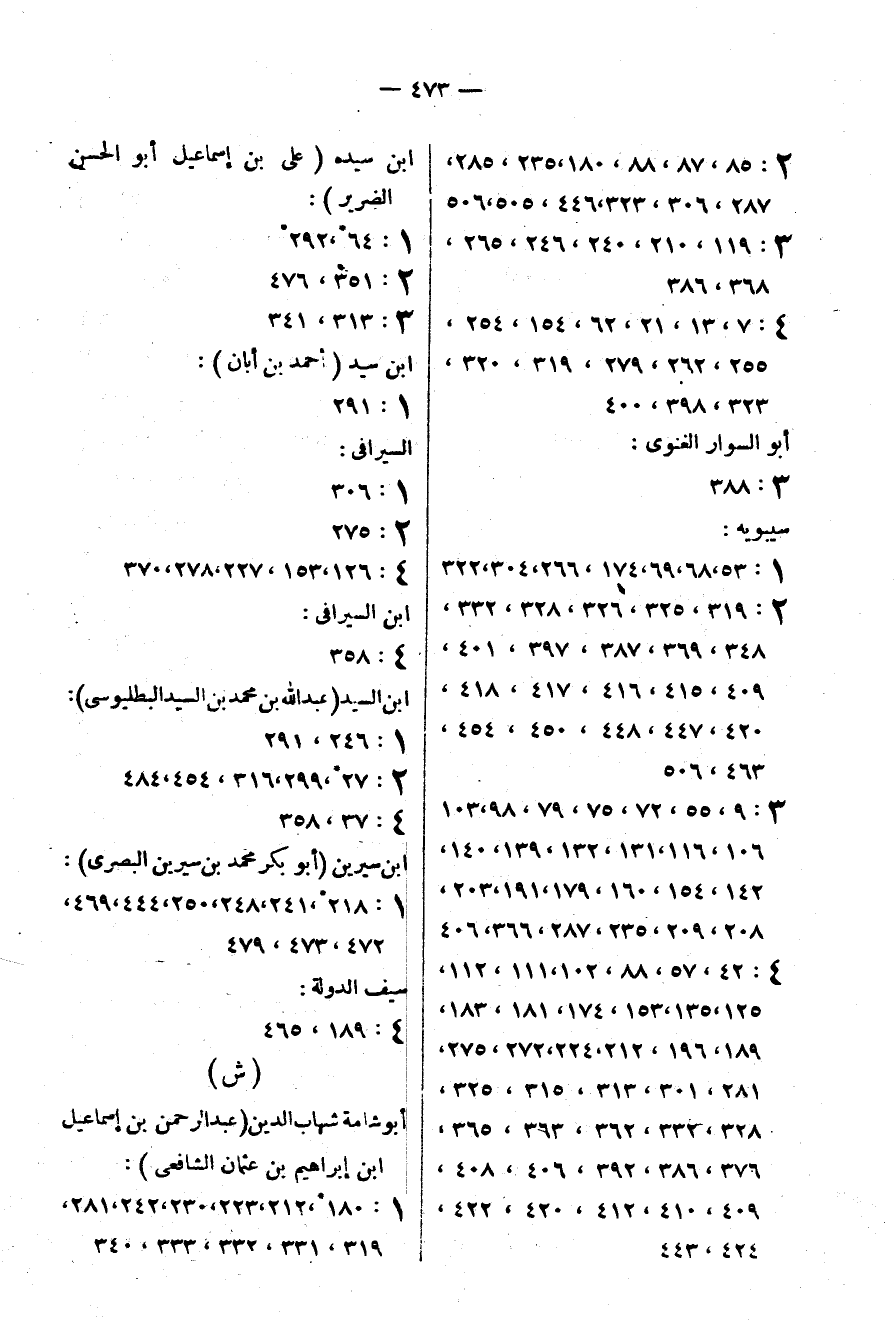 — ٤٧٣ —
٢ : ٨٥ ، ٨٧ ، ٨٨ ، ١٨٠،٢٣٥ ، ٢٨٥،
٢٨٧ ، ٣٠٦ ، ٣٢٣،٤٤٦ ، ٥٠٥،٥٠٦
٣ : ١١٩ ، ٢١٠ ، ٢٤٠ ، ٢٤٦ ، ٢٦٥ ،
٣٦٨ ، ٣٨٦
٤ : ٧ ، ١٣ ، ٢١ ، ٦٢ ، ١٥٤ ، ٢٥٤ ،
٢٥٥ ، ٢٦٢ ، ٢٧٩ ، ٣١٩ ، ٣٢٠ ،
٣٢٣ ، ٣٩٨ ، ٤٠٠
أبو السوار الغنوى :
٣ : ٣٨٨
سيبويه :
١ : ٥٣،٦٨،٦٩،١٧٤ ، ٢٦٦،٣٠٤،٣٢٢
٢ : ٣١٩ ، ٣٢٥ ، ٣٢٦ ، ٣٢٨ ، ٣٣٢ ،
٣٤٨ ، ٣٦٩ ، ٣٨٧ ، ٣٩٧ ، ٤٠١ ،
٤٠٩ ، ٤١٥ ، ٤١٦ ، ٤١٧ ، ٤١٨ ،
٤٢٠ ، ٤٤٧ ، ٤٤٨ ، ٤٥٠ ، ٤٥٤ ،
٤٦٣ ، ٥٠٦
٣ : ٩ ، ٥٥ ، ٧٢ ، ٧٥ ، ٧٩ ، ٩٨،١٠٣
١٠٦ ، ١١٦،١٣١ ، ١٣٢ ، ١٣٩، ١٤٠،
١٤٢ ، ١٥٤ ، ١٦٠ ، ١٧٩،١٩١،٢٠٣،
٢٠٨ ، ٢٠٩، ٢٣٥ ، ٢٨٧ ، ٣٦٦،٤٠٦
٤ : ٤٢ ، ٥٧ ، ٨٨ ، ١٠٢،١١١ ، ١١٢،
١٢٥ ،١٣٥،١٥٣ ، ١٧٤، ١٨١ ، ١٨٣،
١٨٩،١٩٦ ، ٢١٢،٢٢٤،٢٧٢ ، ٢٧٥،
٢٨١ ، ٣٠١ ، ٣١٣ ، ٣١٥ ، ٣٢٥ ،
٣٢٨ ، ٣٣٢ ، ٣٦٢ ، ٣٦٣ ، ٣٦٥ ،
٣٧٦ ، ٣٨٦ ، ٣٩٢ ، ٤٠٦ ، ٤٠٨ ،
٤٠٩ ، ٤١٠ ، ٤١٢ ، ٤٢٠ ، ٤٢٢ ،
٤٢٤ ، ٤٤٣
ابن سيده ( على بن إسماعيل أبو الحسن
الضرير ) :
١ : ٦٤*،٢٩٢*
٢ : ٣٥١ ، ٤٧٦
٣ : ٣١٣ ، ٣٤١
ابن سيد ( أحمد بن أبان ) :
١ : ٢٩١
السيرافى :
١ : ٣٠٦
٢ : ٢٧٥
٤ : ١٢٦،١٥٣ ، ٢٢٧،٢٧٨،٣٧٠
ابن السيرافى :
٤ : ٣٥٨
ابن السيد ( عبدالله بن محمد بن السيد البطليوسى):
١ : ٢٤٦ ، ٢٩١
٢ : ٢٧*،٢٩٩،٣١٦ ، ٤٥٤،٤٨٤
٤ : ٣٧ ، ٣٥٨
ابن سيرين (أبو بكر محمد بن سيرين البصرى) :
١ : ٢١٨*،٢٤١،٢٤٨،٢٥٠،٤٤٤،٤٦٩،
٤٧٢ ، ٤٧٣ ، ٤٧٩
سيف الدولة :
٤ : ١٨٩ ، ٤٦٥
( ش )
أبو شامة شهاب الدين (عبدالرحمن بن إسماعيل
ابن إبراهيم بن عثمان الشافعى ) :
١ : ١٨٠*،٢١٢،٢٢٣،٢٣٠،٢٤٢،٢٨١،
٣١٩ ، ٣٣١ ، ٣٣٢ ، ٣٣٣ ، ٣٤٠